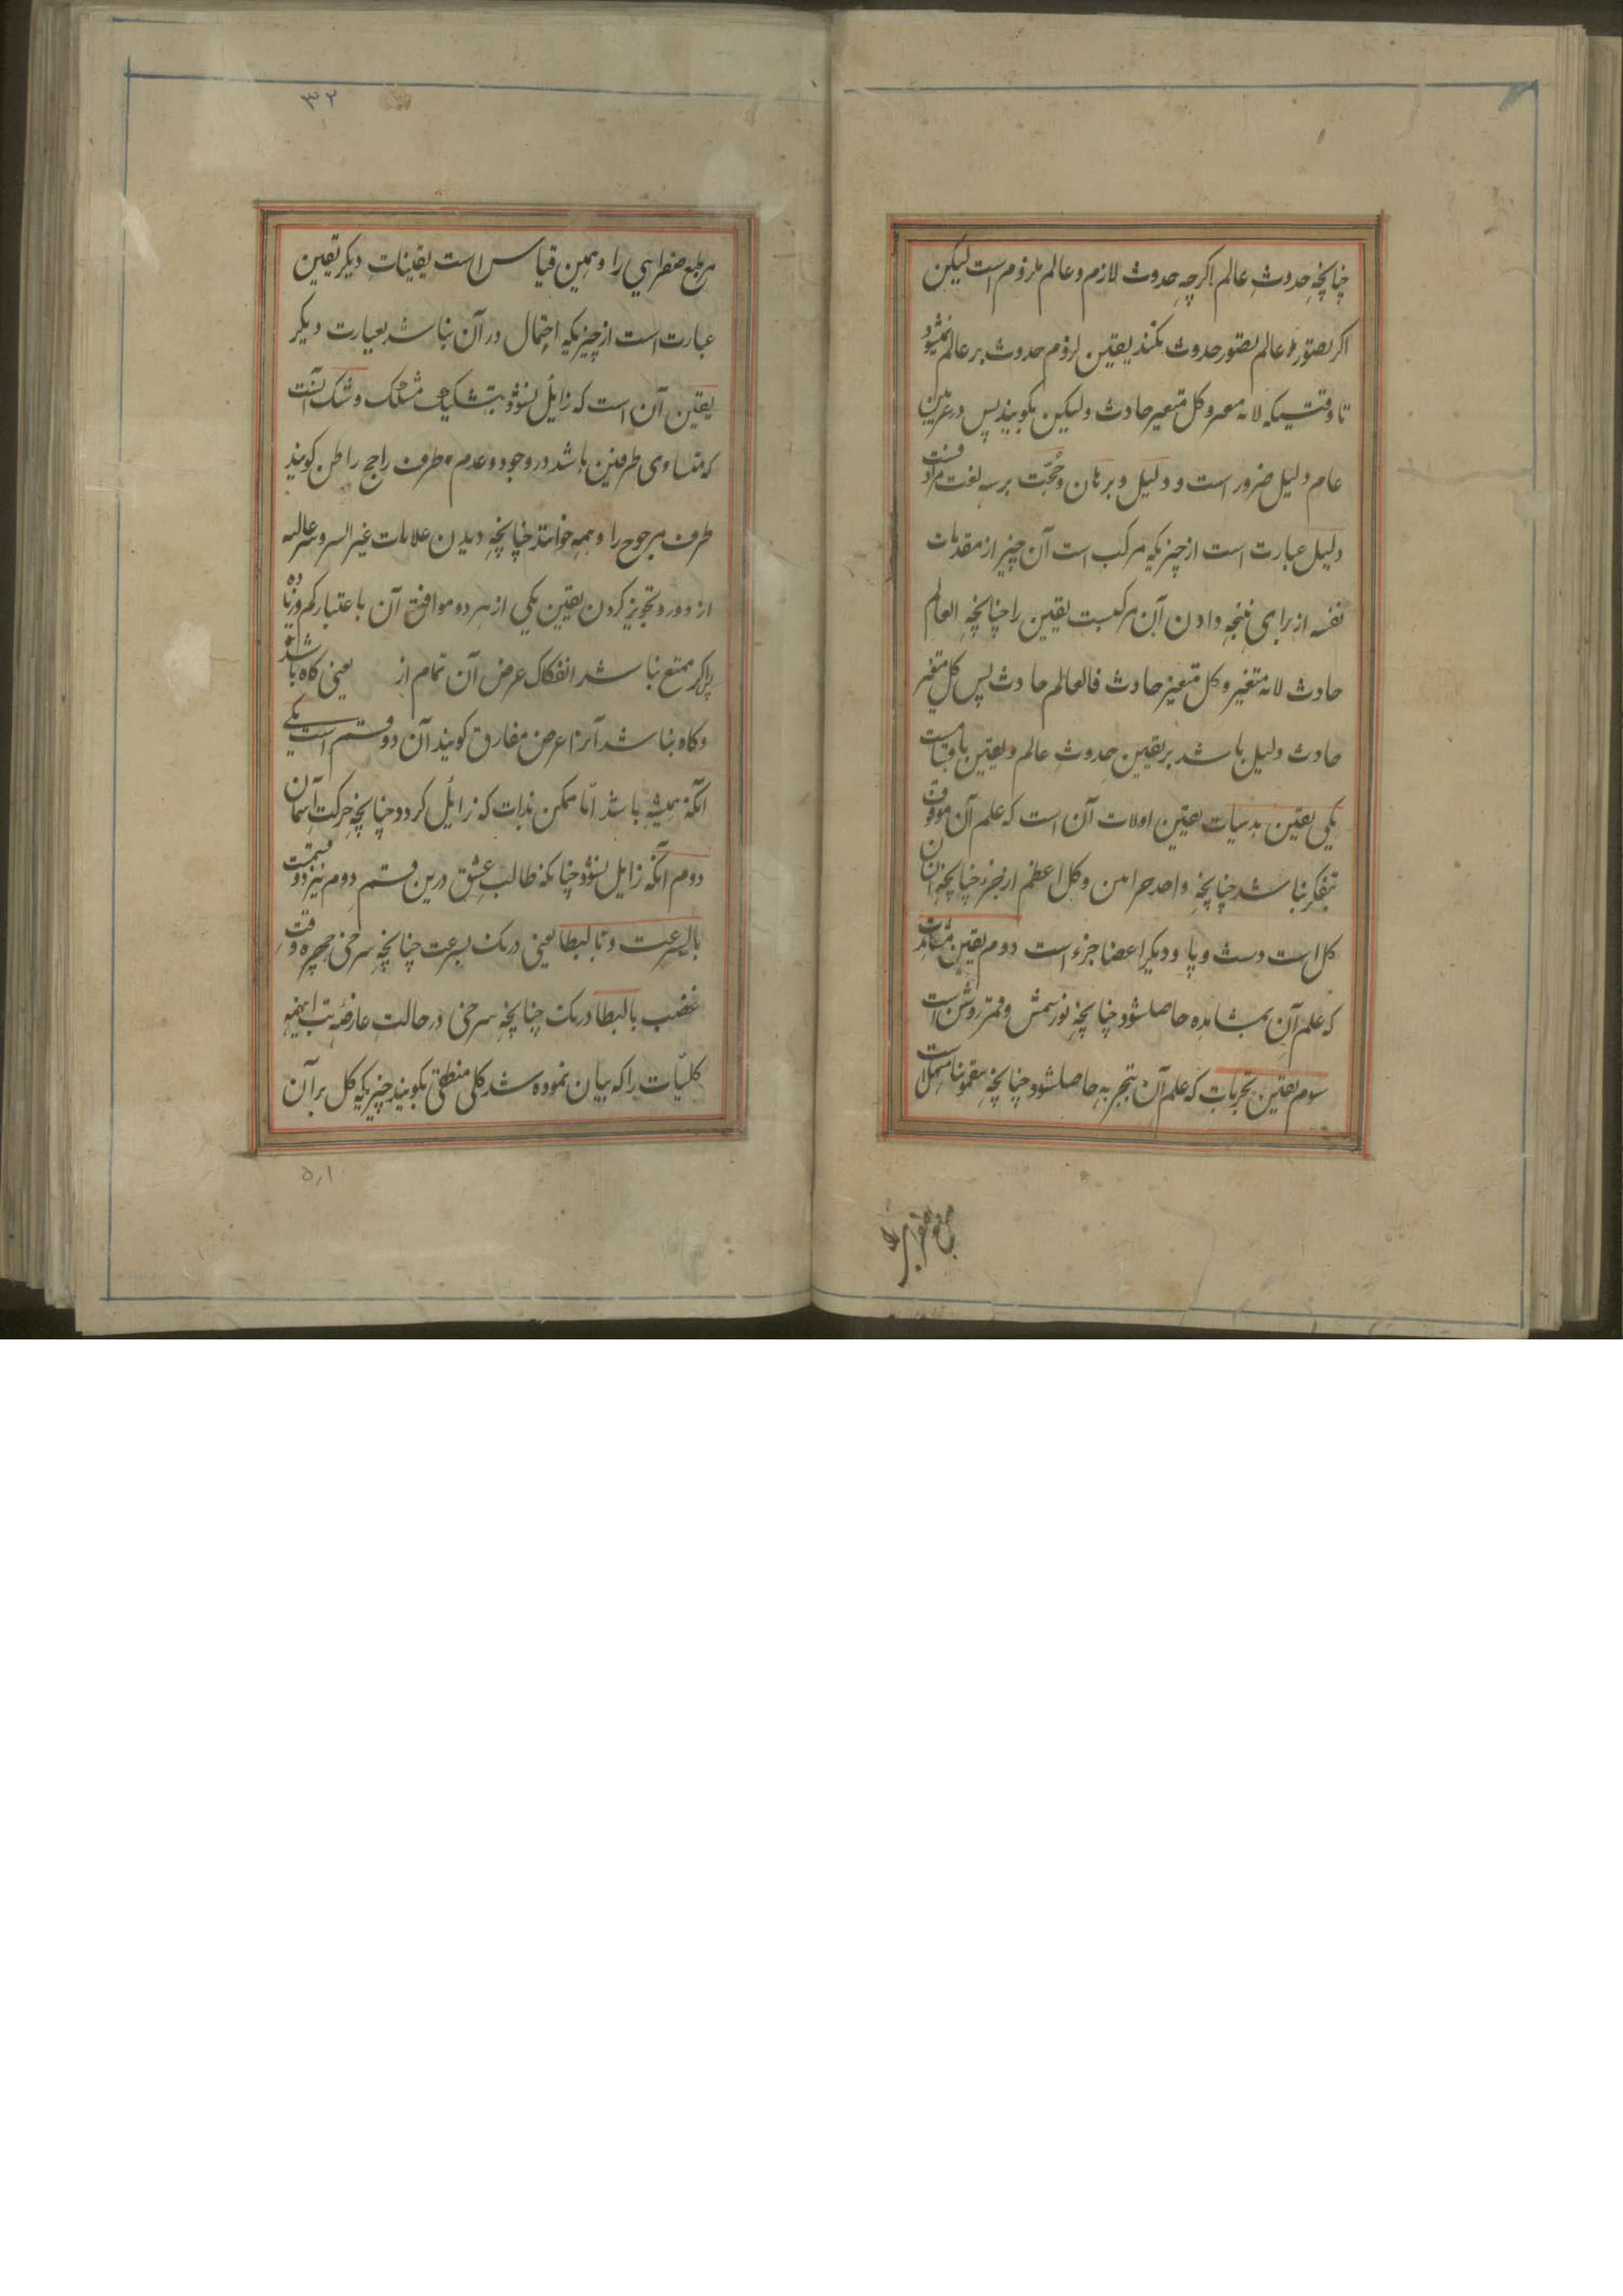 چنانچه حدوث عالم اگرچه حدوث لازم و عالم ملزوم است لیکن
اگر بصتور عالم بصتور حدوث نکند یقین لزوم حدوث بر عالم نمیشود
تا وقتیکه لانه متغیر و کل متغیر حادث ولیکن بگویند پس در عرض
عام دلیل ضرور است و دلیل و برهان و حجّت بر سه لغت مراد
دلیل عبارت است از چیزیکه مرکب است آن چیز از مقدمات
نفسه از برای نتیجه دادن آن مرکبست یقین را چنانچه العالم
حادث لانه متغیر و کل متغیر حادث فالعالم حادث پس کل متغیر
حادث دلیل باشد بر یقین حدوث عالم و یقین
یکی یقین بدیهیات یقین اولات آن است که علم آن موقوف
بتفکر نباشد چنانچه واحد وکل اعظم از جزء چنانچه
کل است دست و پا و دیگر اعضا جزء است دوم یقین مشاهدات
که علم آن بمشاهده حاصلشود چنانچه نور شمس و قمر روشن است
سوم یقین تجربات که علم آن بتجربه حاصلشود چنانچه سقمونیا مسهل است
۳۲
مر طبع صفراهی را و همین قیاس است یقینات دیگر یقین
عبارت است از چیزیکه احتمال در آن نباشد بعبارت دیگر
یقین آن است که زایل نشود بتشکیک مشکک و شک آنست
که متساوی طرفین باشد در وجود و عدم و طرف راجح را ظن گویند
طرف مرجوح را وهمه خوانند چنانچه دیدن علامات
از دور و تجویز کردن یقین یکی از هر دو موافق آن باعتبار کم و زیاده
پراگر ممتنع نباشد انفکاک عرض آن تمام از یعنی گاه باشد
و گاه نباشد آنرا عرض مفارق گویند آن دو قسم است یکی
آنکه همیشه باشد امّا ممکن بذات که زایل گردد چنانچه حرکت آسمان
دوم آنکه زایل نشود چنانکه طالب عشق درین قسم دوم نیز دو قسمت
بالسرعت و بالبطا یعنی درنک بسرعت چنانچه سرخی چهره وقت
غضب بالبطا درنک چنانچه سرخی در حالت عارضه تب
کلیّات را که بیان نموده شد کلی منطقی بگویند چیزیکه کل بر آن
۵۱